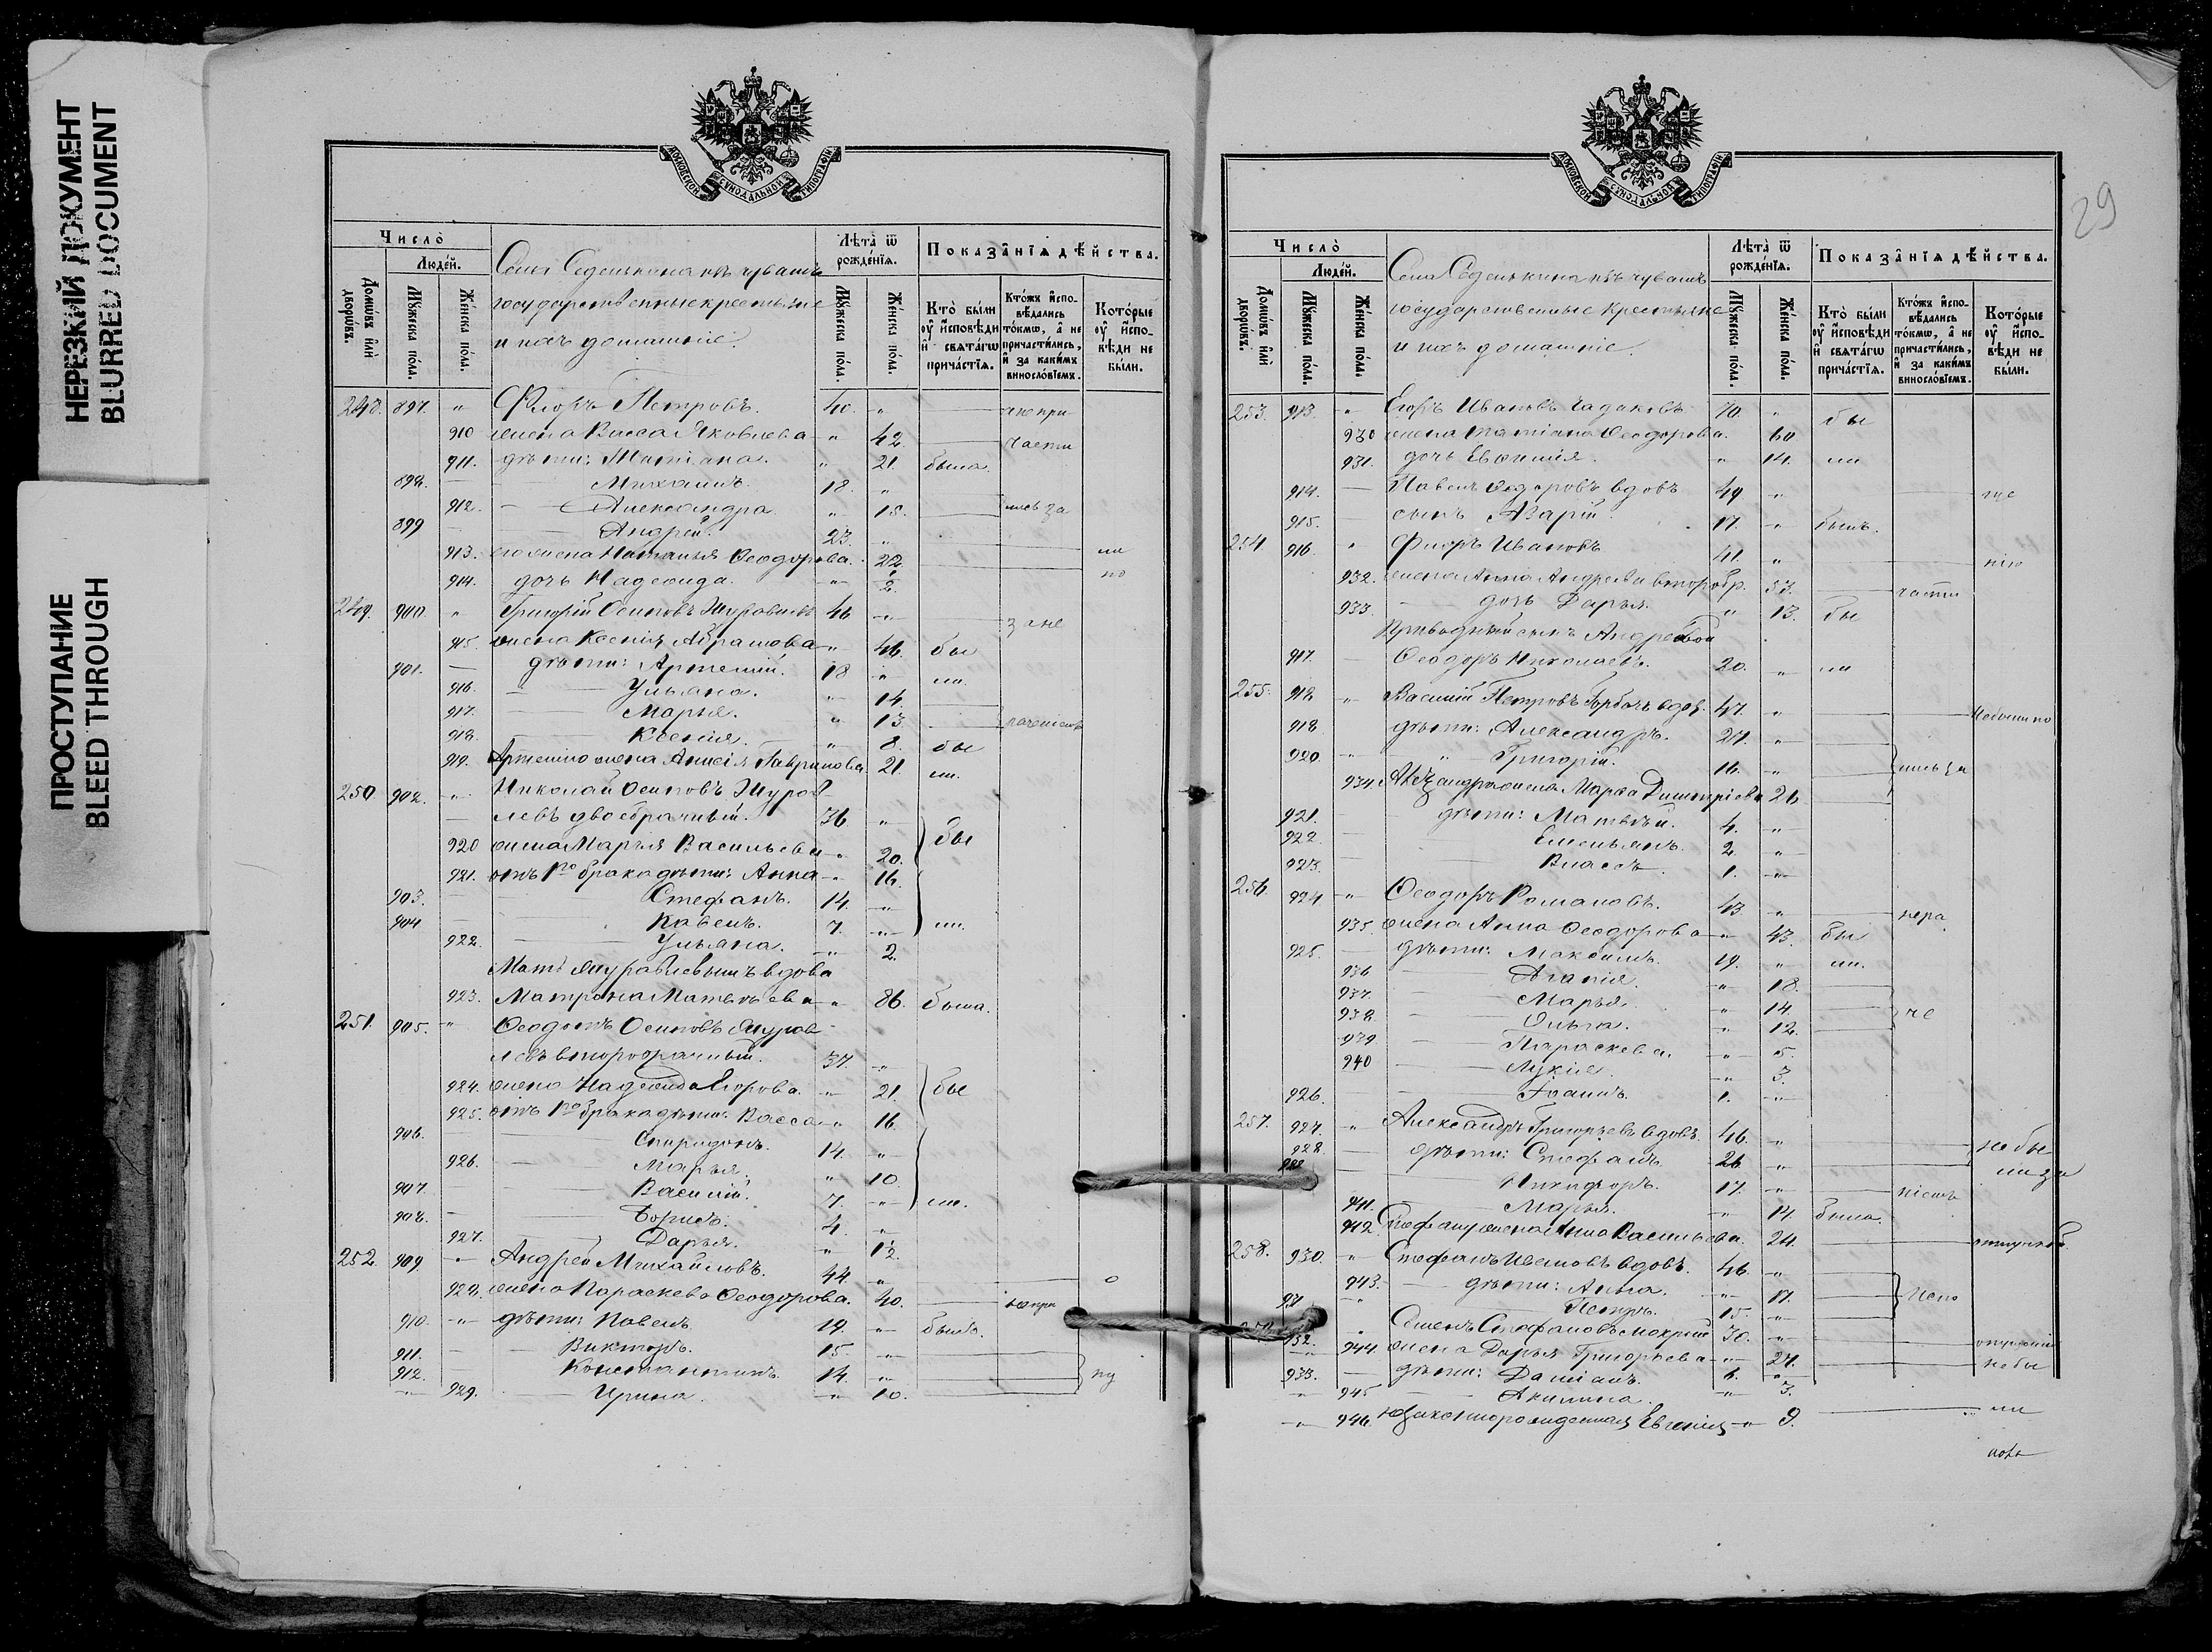 НЕРЕЗКИЙ ДОКУМЕНТ
BLURRED DOCUMENT
ПРОСТУПАНИЕ
BLEED THROUGH
МОСКОВСКОЙ СѴНОДАЛЬНОЙ ТИПОГРАФІИ
Число̀
Домѡ́въ и҆лѝ дворѡ́въ.
Люде́й.
Мꙋ́жеска по́ла.
Же́нска по́ла.
Села Седенькина изъ чувашъ
государственные крестьяне
и ихъ домашніе.
Лѣ́та ѿ рожде́нїѧ.
Мꙋ́жеска по́ла.
Же́нска по́ла.
Показа̑нїѧ дѣ́йства.
Кто̀ бы́ли ᲂу҆ и҆сповѣ́ди и҆ свѧта́гѡ прича́стїѧ.
Кто́жъ и҆спо-вѣ́дались то́кмѡ, а҆ не причасти́лись, и҆ за каки́мъ винослові́емъ.
Кото́рые ᲂу҆ и҆спо-вѣ́ди не бы́ли.
248. 897. " Флоръ Петровъ. 40. "
910 жена Васса Яковлева " 42
911. дѣти: Татіана. " 21. была
898. Михаилъ. 18. "
912. Александра " 15.
899 Андрей. 23. "
913. его жена Наталья Ѳеодорова. 22
914. дочь Надежда. " 2.
249. 900. " Григорій Осиповъ Журавлевъ 46 "
915. жена Ксенія Абрамова " 46. бы
901. дѣти: Артемій. 18 " ли.
916. Ульяна. " 14.
917. Марья. " 13
918. Ксенія. " 8. бы
919. Артемію жена Анисія Гаврилова 21. ли.
250 902. " Николай Осиповъ Журав
левъ двоебрачный. 36 "
920 жена Марья Васильева " 20. бы
921. отъ 1го брака дѣти: Анна " 16.
903. Стефанъ. 14. "
904 Павелъ. 7. " ли.
922. Ульяна. " 2.
Мать Журавлевымъ вдова
923. Матрона Матвѣева " 86. была.
251. 905. " Ѳеодотъ Осиповъ Журав
левъ второбрачный. 37. "
924. жена Надежда Егорова. " 21. бы
925. отъ 1го брака дѣти: Васса " 16.
906. Спиридонъ. 14. "
926. Марья. " 10.
907. Василій. 7. " ли.
908. Борисъ. 4. "
927. Дарья. " 1/2.
252. 909. " Андрей Михайловъ. 44 "
928. жена Параскева Ѳеодорова. 40.
910. " дѣти: Павелъ. 19. " былъ.
911. Викторъ. 15 "
912. Константинъ. 14. "
" 929. Ирина. " 10.
29
МОСКОВСКОЙ СѴНОДАЛЬНОЙ ТИПОГРАФІИ
Число̀
Домѡ́въ и҆лѝ дворѡ́въ.
Люде́й.
Мꙋ́жеска по́ла.
Же́нска по́ла.
Села Седенькина изъ чувашъ
государственные крестьяне
и ихъ домашніе.
Лѣ́та ѿ рожде́нїѧ.
Мꙋ́жеска по́ла.
Же́нска по́ла.
Показа̑нїѧ дѣ́йства.
Кто̀ бы́ли ᲂу҆ и҆сповѣ́ди и҆ свѧта́гѡ прича́стїѧ.
Кто́жъ и҆спо-вѣ́дались то́кмѡ, а҆ не причасти́лись, и҆ за каки́мъ винослові́емъ.
Кото́рые ᲂу҆ и҆спо-вѣ́ди не бы́ли.
253. 913. " Егоръ Ивановъ 70. " бы
930 жена Татіана Ѳеодорова. 60
931. дочь Евѳимія. " 14. ли
914. Павелъ вдовъ 49 "
915. сынъ Азарій. 17. " былъ.
254. 916. " Флоръ Ивановъ 41. "
932. жена Анна Андреева второбр. 37. части
933. дочь Дарья. " 13. бы
Приводный сынъ Андреевой
917. Ѳеодоръ Николаевъ. 20. " ли
255. 918. " Василій Петровъ Горбачъ вдов. 47. "
918 дѣти: Александръ. 27. "
920. " Григорій. 16. "
934. Александра жена Марѳа Димитріева 26
921. дѣти: Матвѣй. 4. "
922. Емельянъ. 2. "
923. Власъ. 1. "
256. 924 " Ѳеодоръ Романовъ. 43. " нера
935. жена Анна Ѳеодорова " 43. бы
925. дѣти: Максимъ. 19. " ли.
936 Агапія. " 18.
937. Марья. " 14
938. Ольга. " 12. че
939 Параскева. " 5.
940 Лукія. " 3.
926. Іоаннъ. 1. "
257. 927. " Александръ Григорьевъ вдовъ. 46. " не бы
928. дѣти: Стефанъ. 26 " ли за
Никифоръ. 17. " ніемъ
941. Марья. " 14. была.
942. Стефану жена Анна Васильева. 24.
258. 930. " Стефанъ Ивановъ вдовъ. 46. "
943. дѣти: Анна. " 17.
931 Петръ. 15. "
932. " Семенъ Стефановъ Мокрый 30. "
944. жена Дарья Григорьева " 27. не бы
933. дѣти: Даміанъ. 6. "
" 945 Акилина. " 3.
" 946. незаконнорожденная Евгенія " 9. ли